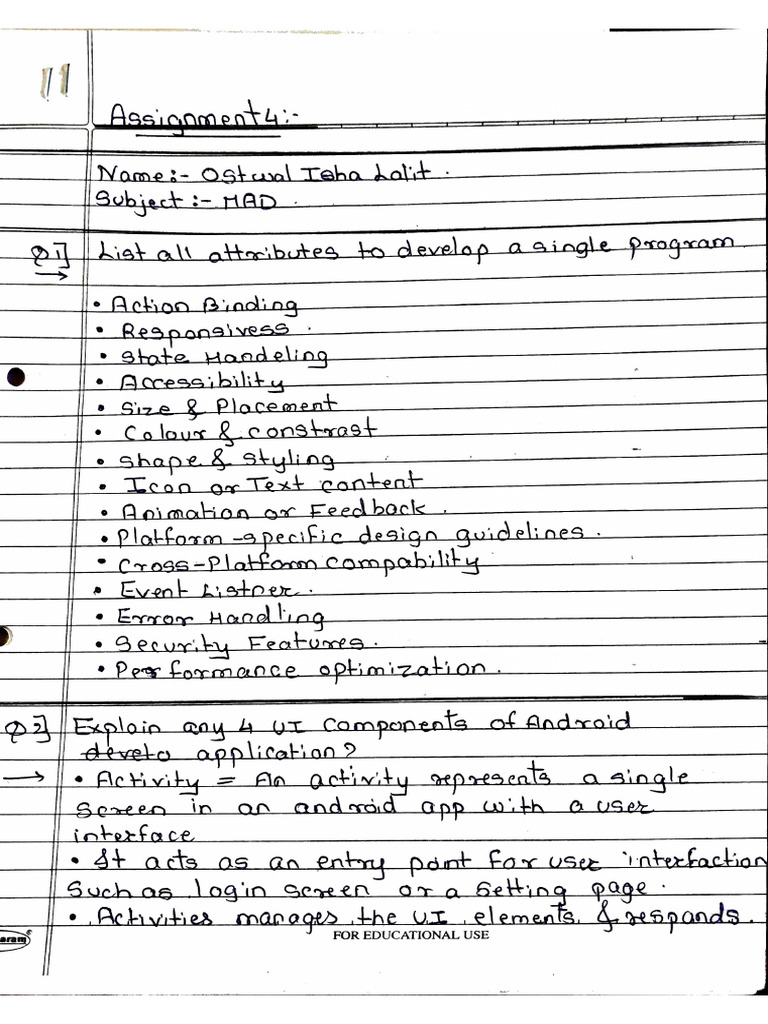 11
Assignment 4:-
Name:- Ostwal Isha Lalit.
Subject :- MAD.
Q1] List all attributes to develop a single program.
→
• Action Binding
• Responsivess.
• State Handeling
• Accessibility
• Size & Placement
• Colour & constrast
• Shape & Styling
• Icon or Text content
• Animation or Feedback.
• Platform-specific design guidelines.
• Cross-Platform compability
• Event Listner.
• Error Handling
• Security Features.
• Performance optimization.
Q2] Explain any 4 UI Components of Android
develo application?
→ • Activity = An activity represents a single
screen in an android app with a user
interface
• It acts as an entry point for user interfaction
such as login screen or a setting page.
• Activities manages the UI elements & responds.
aram®
FOR EDUCATIONAL USE